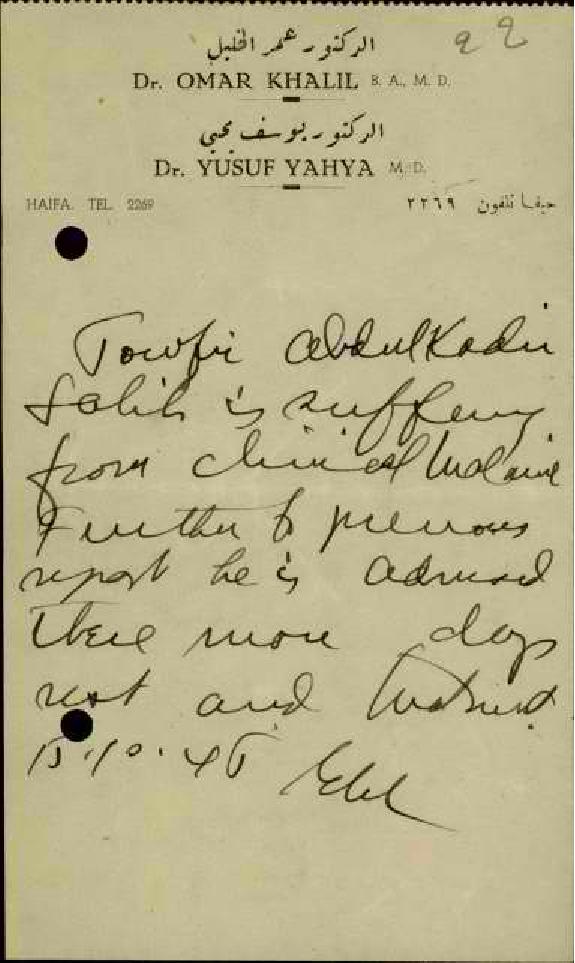 الدكتور عمر الخليل
99
Dr. OMAR KHALIL B. A., M. D.
الدكتور يوسف يحيى
Dr. YUSUF YAHYA M. D.
HAIFA. TEL. 2269
حيفا تلفون ٢٢٦٩
Towfic AbdulKader
Salih is suffering
from clinical Malaria
Further to previous
report he is advised
three more days
rest and treatment
15.10.45